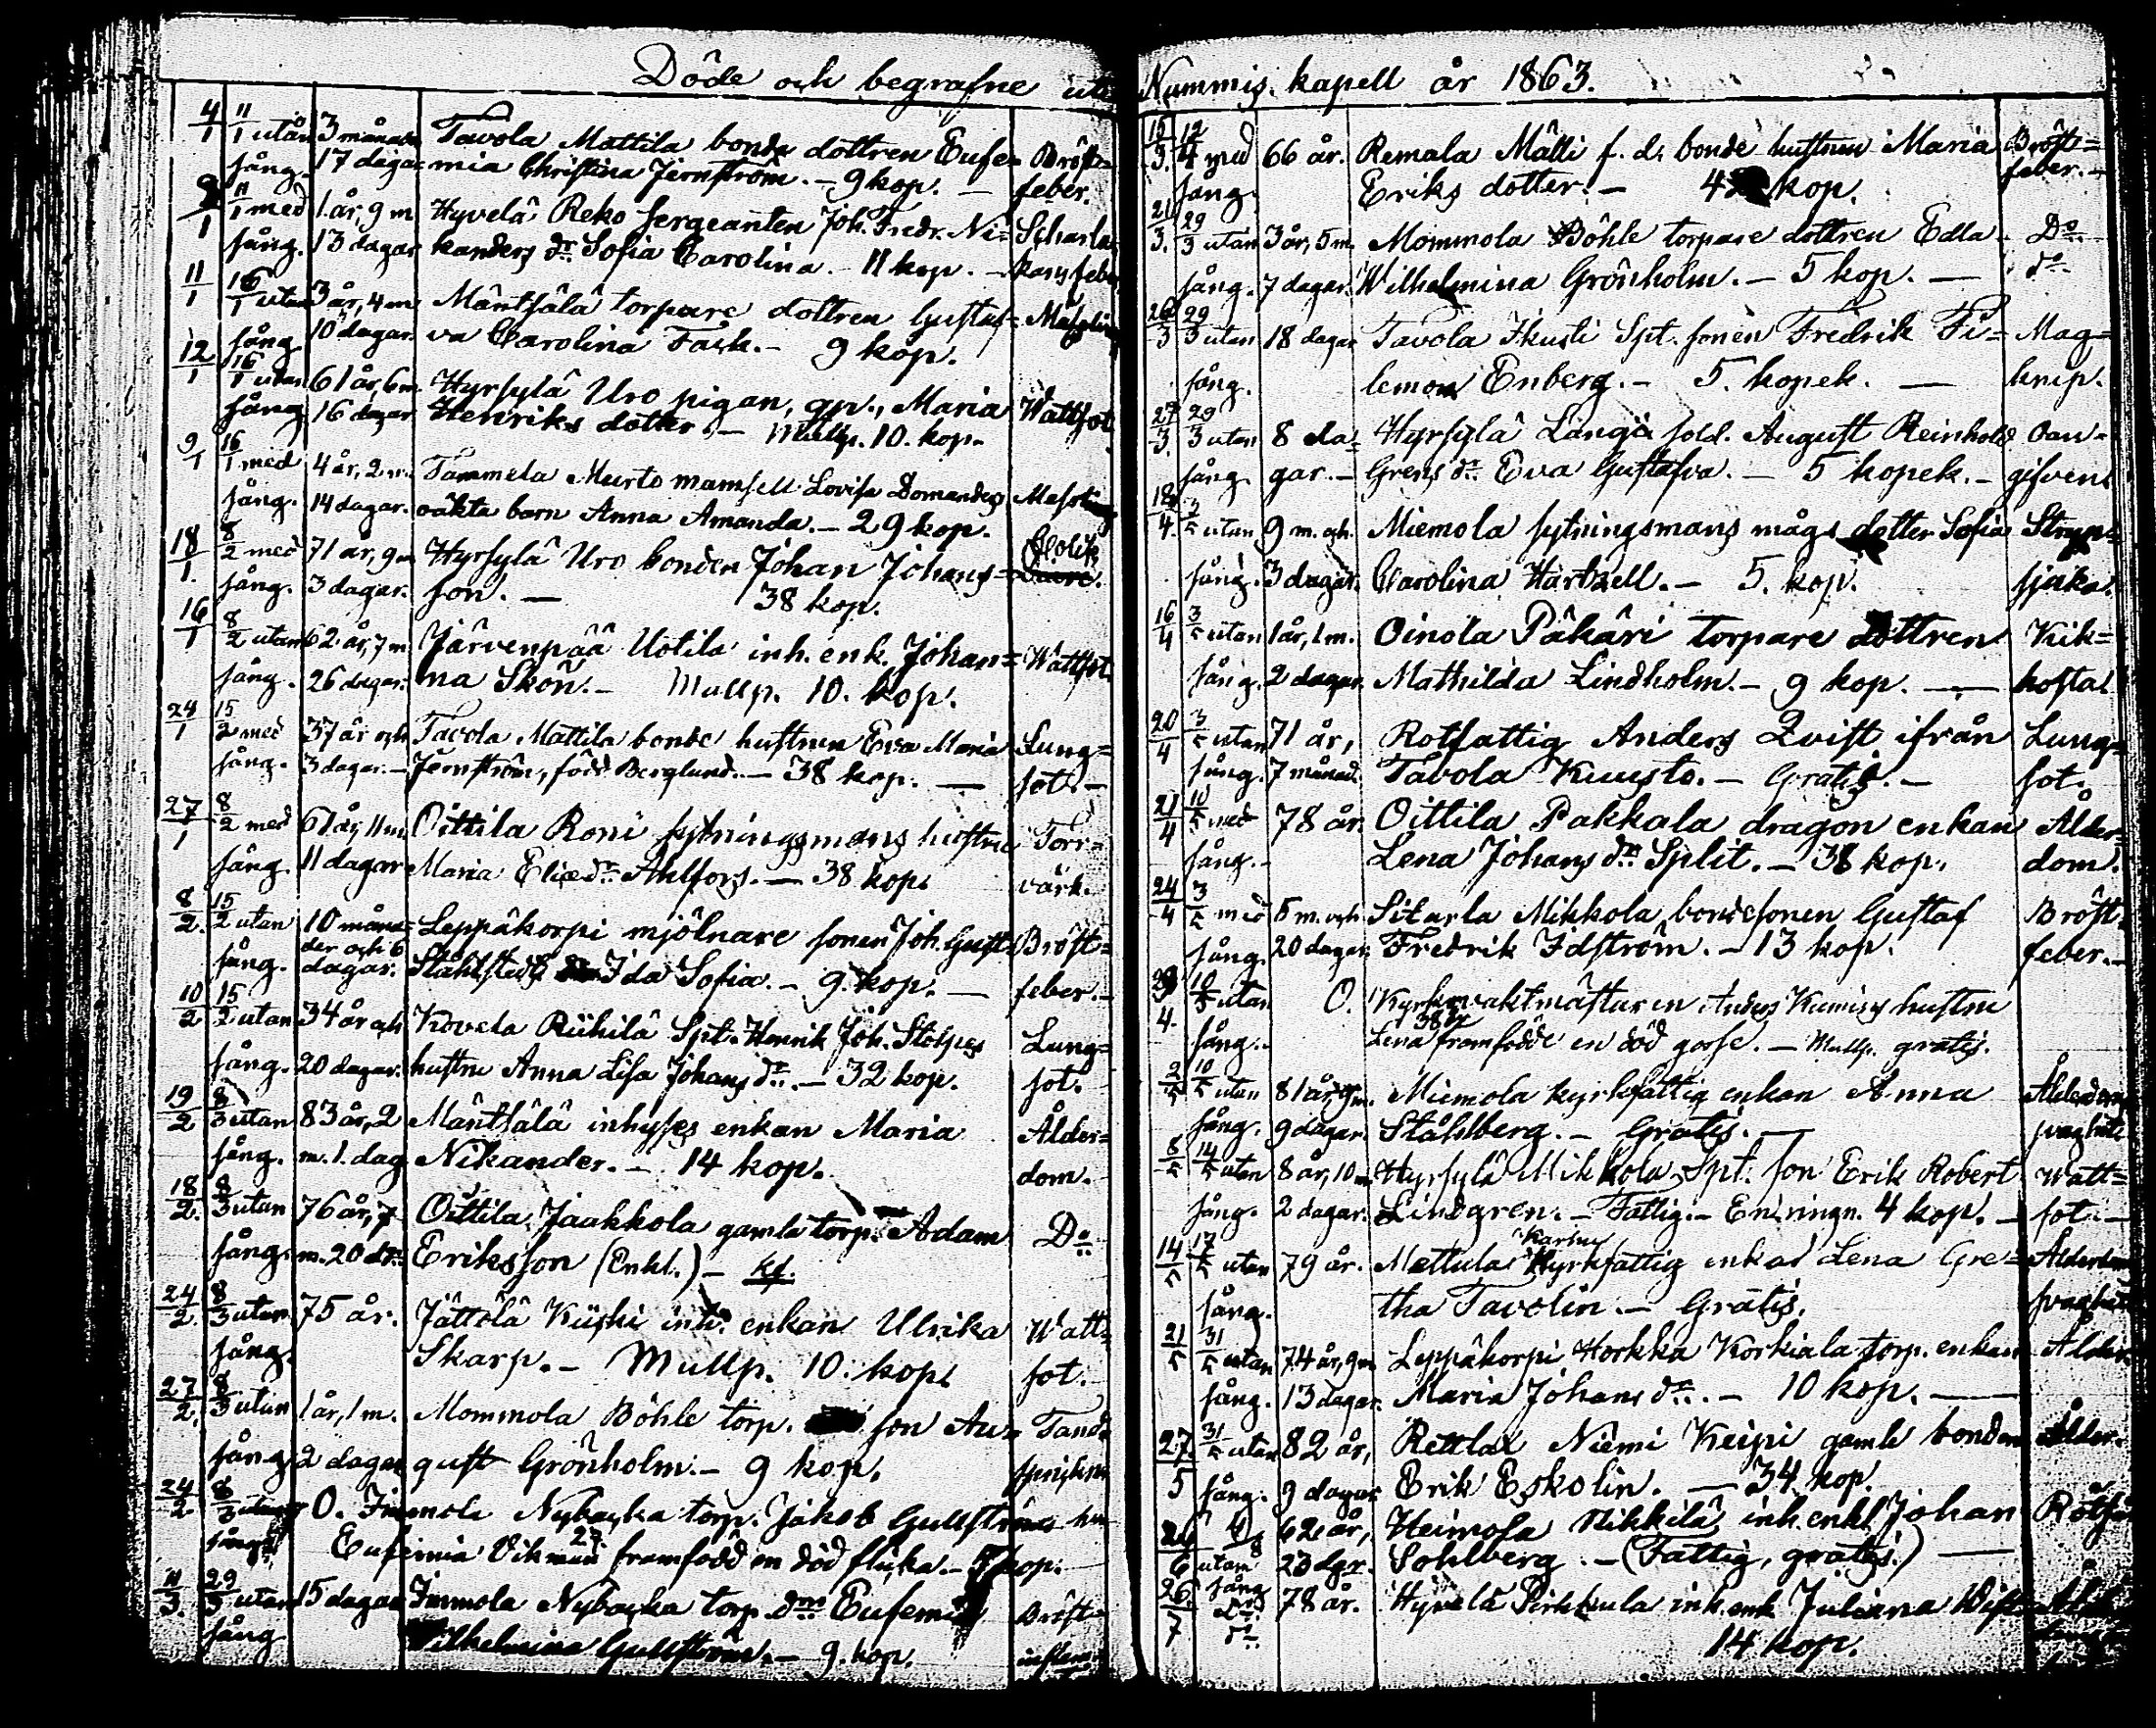 Döde och begrafne uti Nummis kapell år 1863.
4/1 11/1 utan 3 månader Tavola Mattila bonde dottren Eufe= Bröst=
sång. 17 dagar mia Christina Jernström. – 9 kop. – feber.
9/1 11/1 med 1 år, 9 m. Hyvelä Reko sergeanten Joh. Fredr. Ni= Scharla
sång. 13 dagar kanders dr. Sofia Carolina. – 11 kop. – kans feber
11/1 16/1 utan 3 år, 4 m. Mäntsälä torpare dottren Gustaf= Massling
sång 10 dagar. va Carolina Fack. – 9 kop.
12/1 16/1 utan 61 år, 6 m. Hyrsylä Uro pigan, gp., Maria Wattsot
sång 16 dagar Henriks dotter. – Mullp. 10. kop.
9/1 16/1 med 4 år, 2 m. Tammela Murto mamsell Lovisa Domanders Massling
sång. 14 dagar. oäkta barn Anna Amanda. – 29 kop.
18/1. 8/2 med 71 år, 9 m Hyrsylä Uro bonden Johan Johans= Colik
sång. 3 dagar. son. – 38 kop.
16/1 8/2 utan 62 år, 7 m Järvenpää Uotila inh. enk. Johan= Wattsot.
sång. 26 dagar. na Skön. – Mullp. 10. kop.
24/1 15/2 med 37 år och Tavola Mattila bonde hustrun Eva Maria Lung=
sång. 3 dagar. – Jernström, född Berglund. – 38 kop. – sot. –
27/1 8/2 med 61 år, 11 m. Oittila Roni sytningsmans hustru Torr=
sång. 11 dagar Maria Eliæ dr. Ahlfors. – 38 kop. värk.
8/2. 15/2 utan 10 måna= Leppäkorpi mjölnare sonen Joh. Gust. Bröst=
sång. der och 6 dagar. Ståhlstedts Ida Sofia. – 9. kop. – feber. –
10/2 15/2 utan 34 år och Kovela Riihilä Spt. Henrik Joh. Stolpes Lung=
sång. 20 dagar. hustru Anna Lisa Johans dr. – 32 kop. sot.
19/2 8/3 utan 83 år, 2 Mäntsälä inhyses enkan Maria Ålder=
sång. m. 1. dag Nikander. – 14 kop. dom.
18/2. 8/3 utan 76 år, 7 Oittila Jaakkola gamla torp. Adam Do
sång. m. 20 dr. Eriksson (Enkl.) –
24/2. 8/3 utan 75 år. Jättölä Kiiski inh. enkan Ulrika Watt=
sång. Skarp. – Mullp. 10. kop. sot.
27/2. 8/3 utan 1 år, 1 m. Mommola Böhle torp. son Au= Tand=
sång 2 dagar gust Grönholm. – 9 kop.
24/2 8/3 utan O. Immola Nybacka torp. Jakob Gullströms
sång Eufemia Vikman 27 framfödd en död flicka. – kop.
11/3. 29/3 utan 15 dagar Immola Nybacka torp. drn Eufemia Bröst=
sång Vilhelmina Gullström. – 9. kop.
15/3. 12/4 med 66 år. Remala Mälli f. d. bonde hustrun Maria Bröst=
sång. Eriks dotter. – 4 kop. feber. –
21/3. 29/3 utan 3 år, 5 m. Mommola Böhle torpare dottren Edla Do
sång. 7 dagar. Wilhelmina Grönholm. – 5 kop. – do
26/3 29/3 utan 18 dagar Tavola Ikusti Spt. sonen Fredrik Fi= Mag=
sång. lemon Enberg. – 5. kopek. – knip.
27/3. 29/3 utan 8 da= Hyrsylä Längjä sold. August Reinhold Oan=
sång. gar. – Grens dr. Eva Gustafva. – 5 kopek. – gifven.
18/4. 3/5 utan 9 m. och Miemola sytningsmans mågs dotter Sofia Stryp=
sång. 3 dagar. Carolina Hartzell. – 5. kop. sjuka.
16/4 3/5 utan 1 år, 1 m. Oinola Päkäri torpare dottren Kik=
sång. 2 dagar. Mathilda Lindholm. – 9 kop. – hosta.
20/4 3/5 utan 71 år, Rotfattig Anders Qvist ifrån Lung=
sång. 7 månad. Tavola Kuusto. – Gratis. – sot.
21/4 10/5 med 78 år. Oittila Pakkala dragon enkan Ålder=
sång. – Lena Johans dr. Split. – 38 kop. dom.
24/4 3/5 med 5 m. och Sitarla Mikkola bondesonen Gustaf Bröst=
sång. 20 dagar Fredrik Idström. – 13 kop. feber. –
29/4. 10/5 utan O. Kyrkovaktmästaren Anders Kumisys hustru
sång. Lena 38 år framfödde en död gosse. – Mullp. gratis.
2/5 10/5 utan 81 år, 9 m. Miemola kyrkfattig enkan Anna Ålderdoms
sång. 9 dagar. Ståhlberg. – Gratis. – svaghet
8/5 14/5 utan 8 år, 10 m Hyrsylä Mikkola Spt. son Erik Robert Watt=
sång. 2 dagar. Lindgren. – Fattig. – En ringn. 4 kop. – sot. –
14/5 17/5 utan 79 år. Mettula Kyrkfattig enkan Lena Gre= Ålderdom
sång. tha Tavolin. – Gratis. svaghet
21/5 31/5 utan 74 år, 9 m Leppäkorpi Horkka Korkiala torp. enkan Ålder
sång. 13 dagar. Maria Johans dr. – 10 kop. –
27/5 31/5 utan 82 år, Rettlax Niemi Keipi gamle bonden Ålder.
sång. 9 dagar Erik Eskolin. – 34 kop.
24/6 utan 62 år, Heimola Nikkilä inh. enkl Johan
sång 23 dgr. Sohlberg. – (Fattig, gratis.) –
26/7 Do do 78 år. Hyvelä Pirkkula inh. enk Juliana
14 kop.